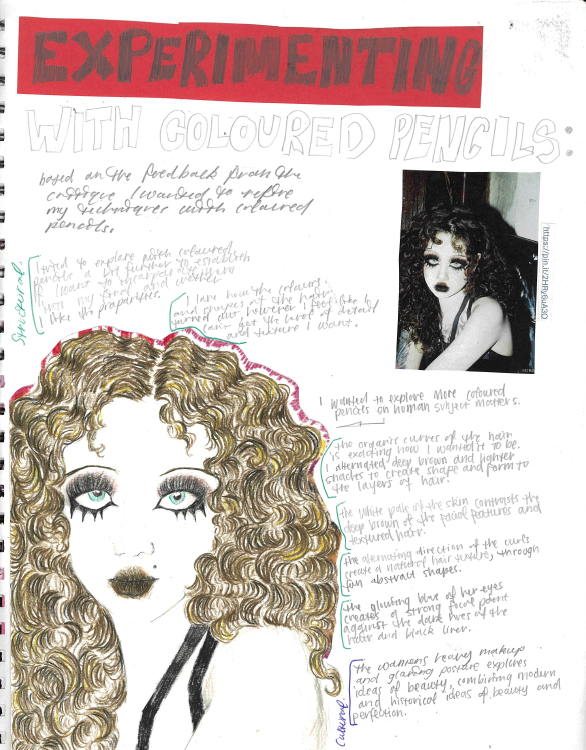 EXPERIMENTING
WITH COLOURED PENCILS:
based on the feedback from the
critique I wanted to refine
my techniques with coloured
pencils.
https://pin.it/2HRy6uA3O
Structural.
I tried to explore with coloured
pencils a bit further to establish
if I want to incorporate them
into my final and whether I
like the properties.
I love how the colours
and shapes of the hair
turned out, however I feel like I
can't get the level of detail
and texture I want.
I wanted to explore more coloured
pencils on human subject matters.
the organic curves of the hair
is exactly how I wanted it to be.
I alternated deep brown and lighter
shades to create shape and form to
the layers of hair.
the white pale of the skin contrasts the
deep brown of the facial features and
textured hair.
the alternating direction of the curls
create a natural hair texture, through
fun abstract shapes.
the glowing blue of her eyes
creates a strong focal point
against the dark hues of the
hair and black liner.
Cultural.
the womens heavy makeup
and glaring posture explores
ideas of beauty, combining modern
and historical ideas of beauty and
perfection.